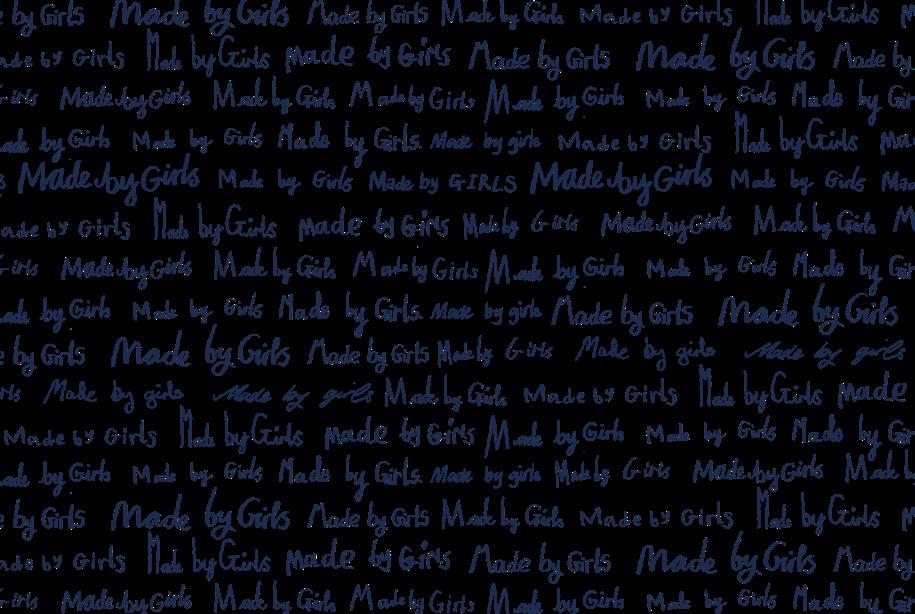 by Girls Made by Girls Made by Girls Made by Girls Made by Girls Made by Girls
by Girls Made by Girls Made by Girls Made by Girls Made by Girls Made by
Girls Made by Girls Made by Girls Made by Girls Made by Girls Made by Girls Made by
by Girls Made by Girls Made by Girls Made by girls Made by Girls Made by Girls
Made by Girls Made by Girls Made by GIRLS Made by Girls Made by Girls
by Girls Made by Girls Made by Girls Made by Girls Made by Girls Made by Girls
Girls Made by Girls Made by Girls Made by Girls Made by Girls Made by Girls Made by
by Girls Made by Girls Made by Girls Made by girls Made by Girls Made by Girls
by Girls Made by Girls Made by Girls Made by Girls Made by girls Made by girls
Made by girls Made by girls Made by Girls Made by Girls Made by Girls Made
Made by Girls Made by Girls Made by Girls Made by Girls Made by Girls Made by
by Girls Made by Girls Made by Girls Made by girls Made by Girls Made by Girls Made b
by Girls Made by Girls Made by Girls Made by Girls Made by Girls Made by Girls
by Girls Made by Girls Made by Girls Made by Girls Made by Girls Made by
Girls Made by Girls Made by Girls Made by Girls Made by Girls Made by Girls Made by